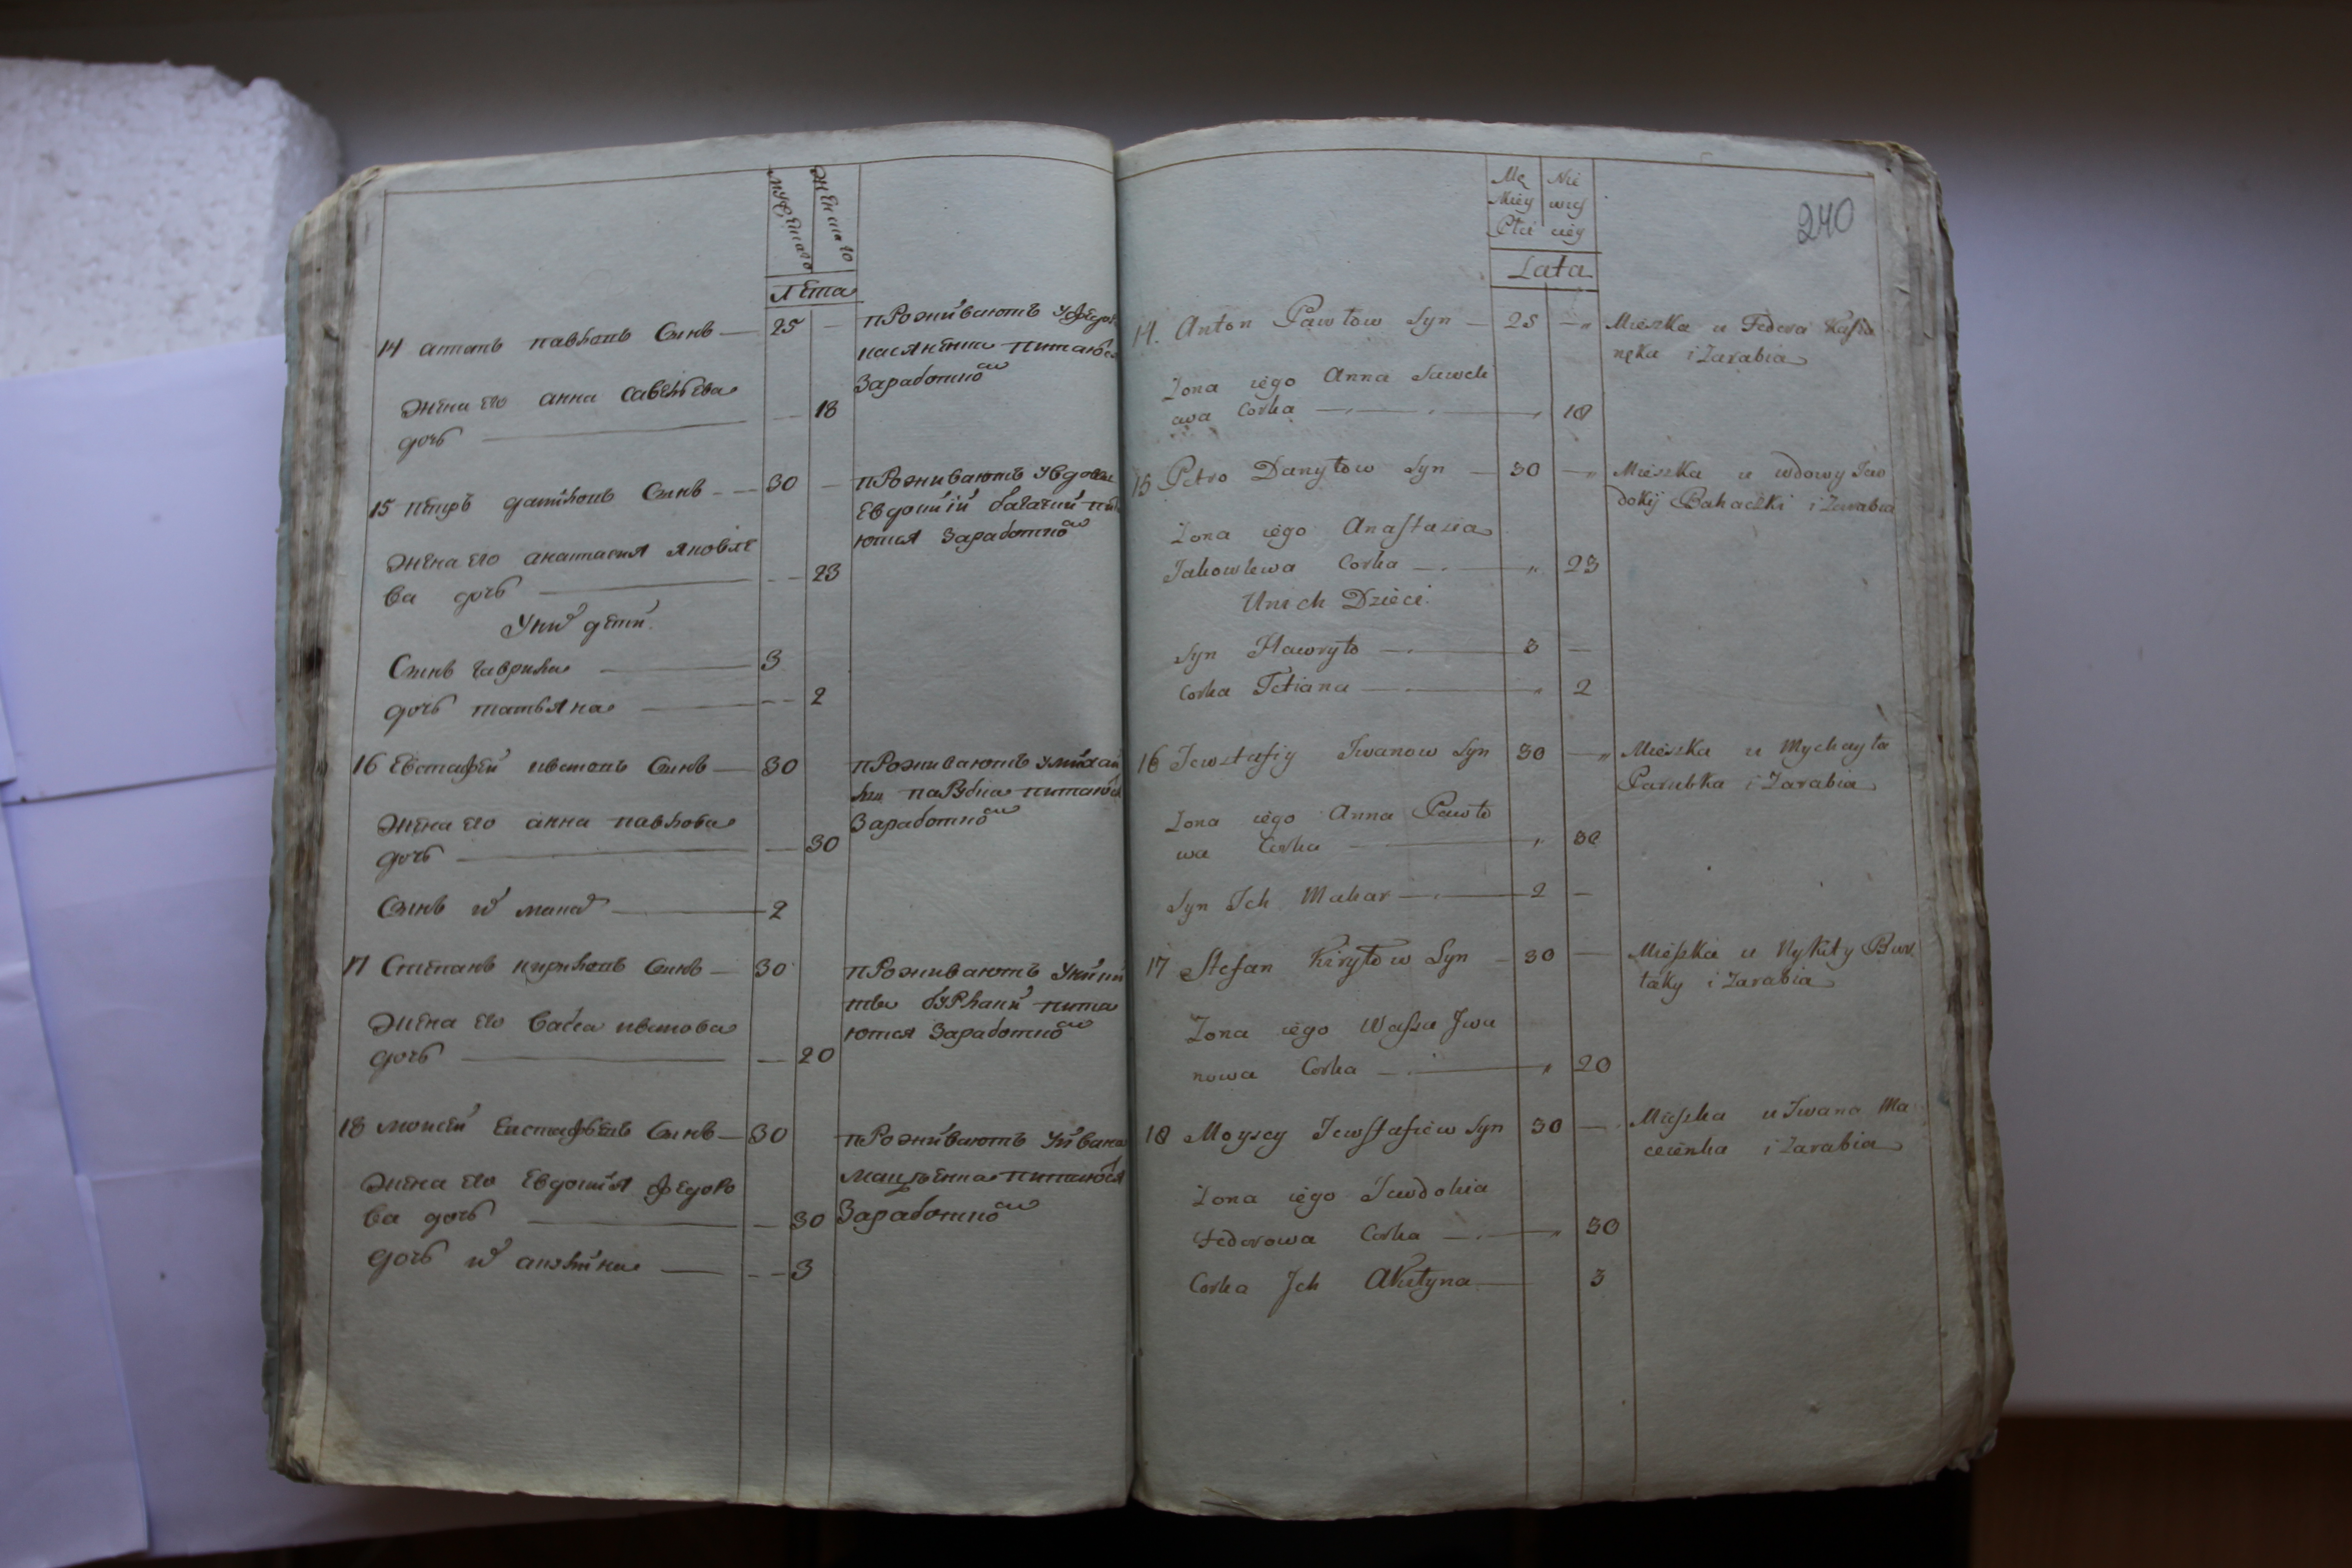 мужеска
женска го
Лѣта
14 антонъ павловъ Сынъ — 25 —
проживаютъ у федо
касяненка питаются
Заработко
жена его анна савельева
дочь — 18
15 петръ даниловъ Сынъ — 30 —
проживаютъ у вдовы
Евдокіи багачки пита
ются Заработко
жена его анастасия яковле
ва дочь — 23
У них дети
Сынъ гаврило — 3
дочь татьяна — 2
16 Евстафей ивановъ Сынъ — 30
проживаютъ у михай
лы парубка питаются
Заработко
жена его анна павлова
дочь — 30
Сынъ их макар — 2
17 Степанъ кириловъ Сынъ — 30
проживаютъ у ники
ты бурлаки пита
ются Заработко
жена его васса иванова
дочь — 20
18 моисей евстафьевъ Сынъ — 30
проживаютъ у ивана
мацѣенка питаются
Заработко
жена его Евдокия федоро
ва дочь — 30
дочь их акулина — 3
240
Mę Nie
skiey wies
Płci ciey
Lata
14. Anton Pawłow Syn — 25 — „ Mieszka u Fedora Kasia
nęka i Zarabia
Zona iego Anna Saweli
awa Corka — „ 18
15 Petro Danyłow Syn — 30 — „ Mieszka u wdowy Jaw
dokij Bahaczki i Zarabia
Zona iego Anastazia
Jakowlewa Corka — „ 23
U nich Dzieci.
Syn Hawryło — 3 —
Corka Tetiana — „ 2
16 Jewstafiy Iwanow Syn 30 — „ Mieszka u Mychayła
Parubka i Zarabia
Zona iego Anna Pawło
wa Corka — „ 30
Syn Ich Makar — 2 —
17 Stefan Kiryłow Syn — 30 — Mieszka u Nykity Bur
łaky i Zarabia
Zona iego Wassa Iwa
nowa Corka — „ 20
18 Moysey Jewstafiew Syn 30 — Mieszka u Iwana Ma
cieienka i Zarabia
Zona iego Jawdokia
Fedorowa Corka — „ 30
Corka Ich Akułyna — 3